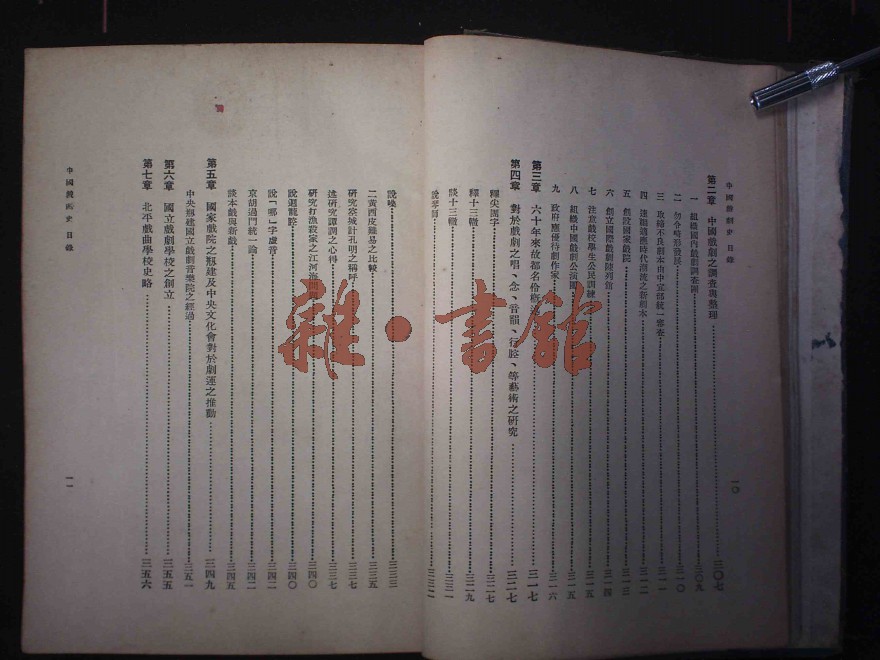 中國戲劇史 目錄
第二章 中國戲劇之調查與整理……三〇七
一 組織國內戲劇調查團……三〇九
二 勿令畸形發展……三一〇
三 取締不良劇本由中宣部統一審查……三一一
四 速編適應時代潮流之新劇本……三一二
五 創設國家戲院……三一三
六 創立國際戲劇陳列館……三一四
七 注意戲校學生公民訓練……三一五
八 組織中國戲劇公演團……三一五
九 政府應優待劇作家……三一六
第三章 六十年來故都名伶概……三一七
第四章 對於戲劇之唱、念、音韻、行腔、等藝術之研究……三二七
釋尖團字……三二七
釋十三轍……三二九
談十三轍……三三一
說琴師……三三二
一〇
說嗓……三三三
二黃西皮難易之比較……三三五
研究空城計孔明之稱呼……三三七
述研究譚調之心得……三三九
研究打漁殺家之江河海……三四〇
說迴龍腔……三四〇
說「哪」字虛音……三四二
京胡過門統一論……三四二
談本戲與新戲……三四五
第五章 國家戲院之籌建及中央文化會對於劇運之推動……三四九
中央籌建國立戲劇音樂院之經過……三五一
第六章 國立戲劇學校之創立……三五五
第七章 北平戲曲學校史略……三五六
中國戲劇史 目錄
一一
雜·書館